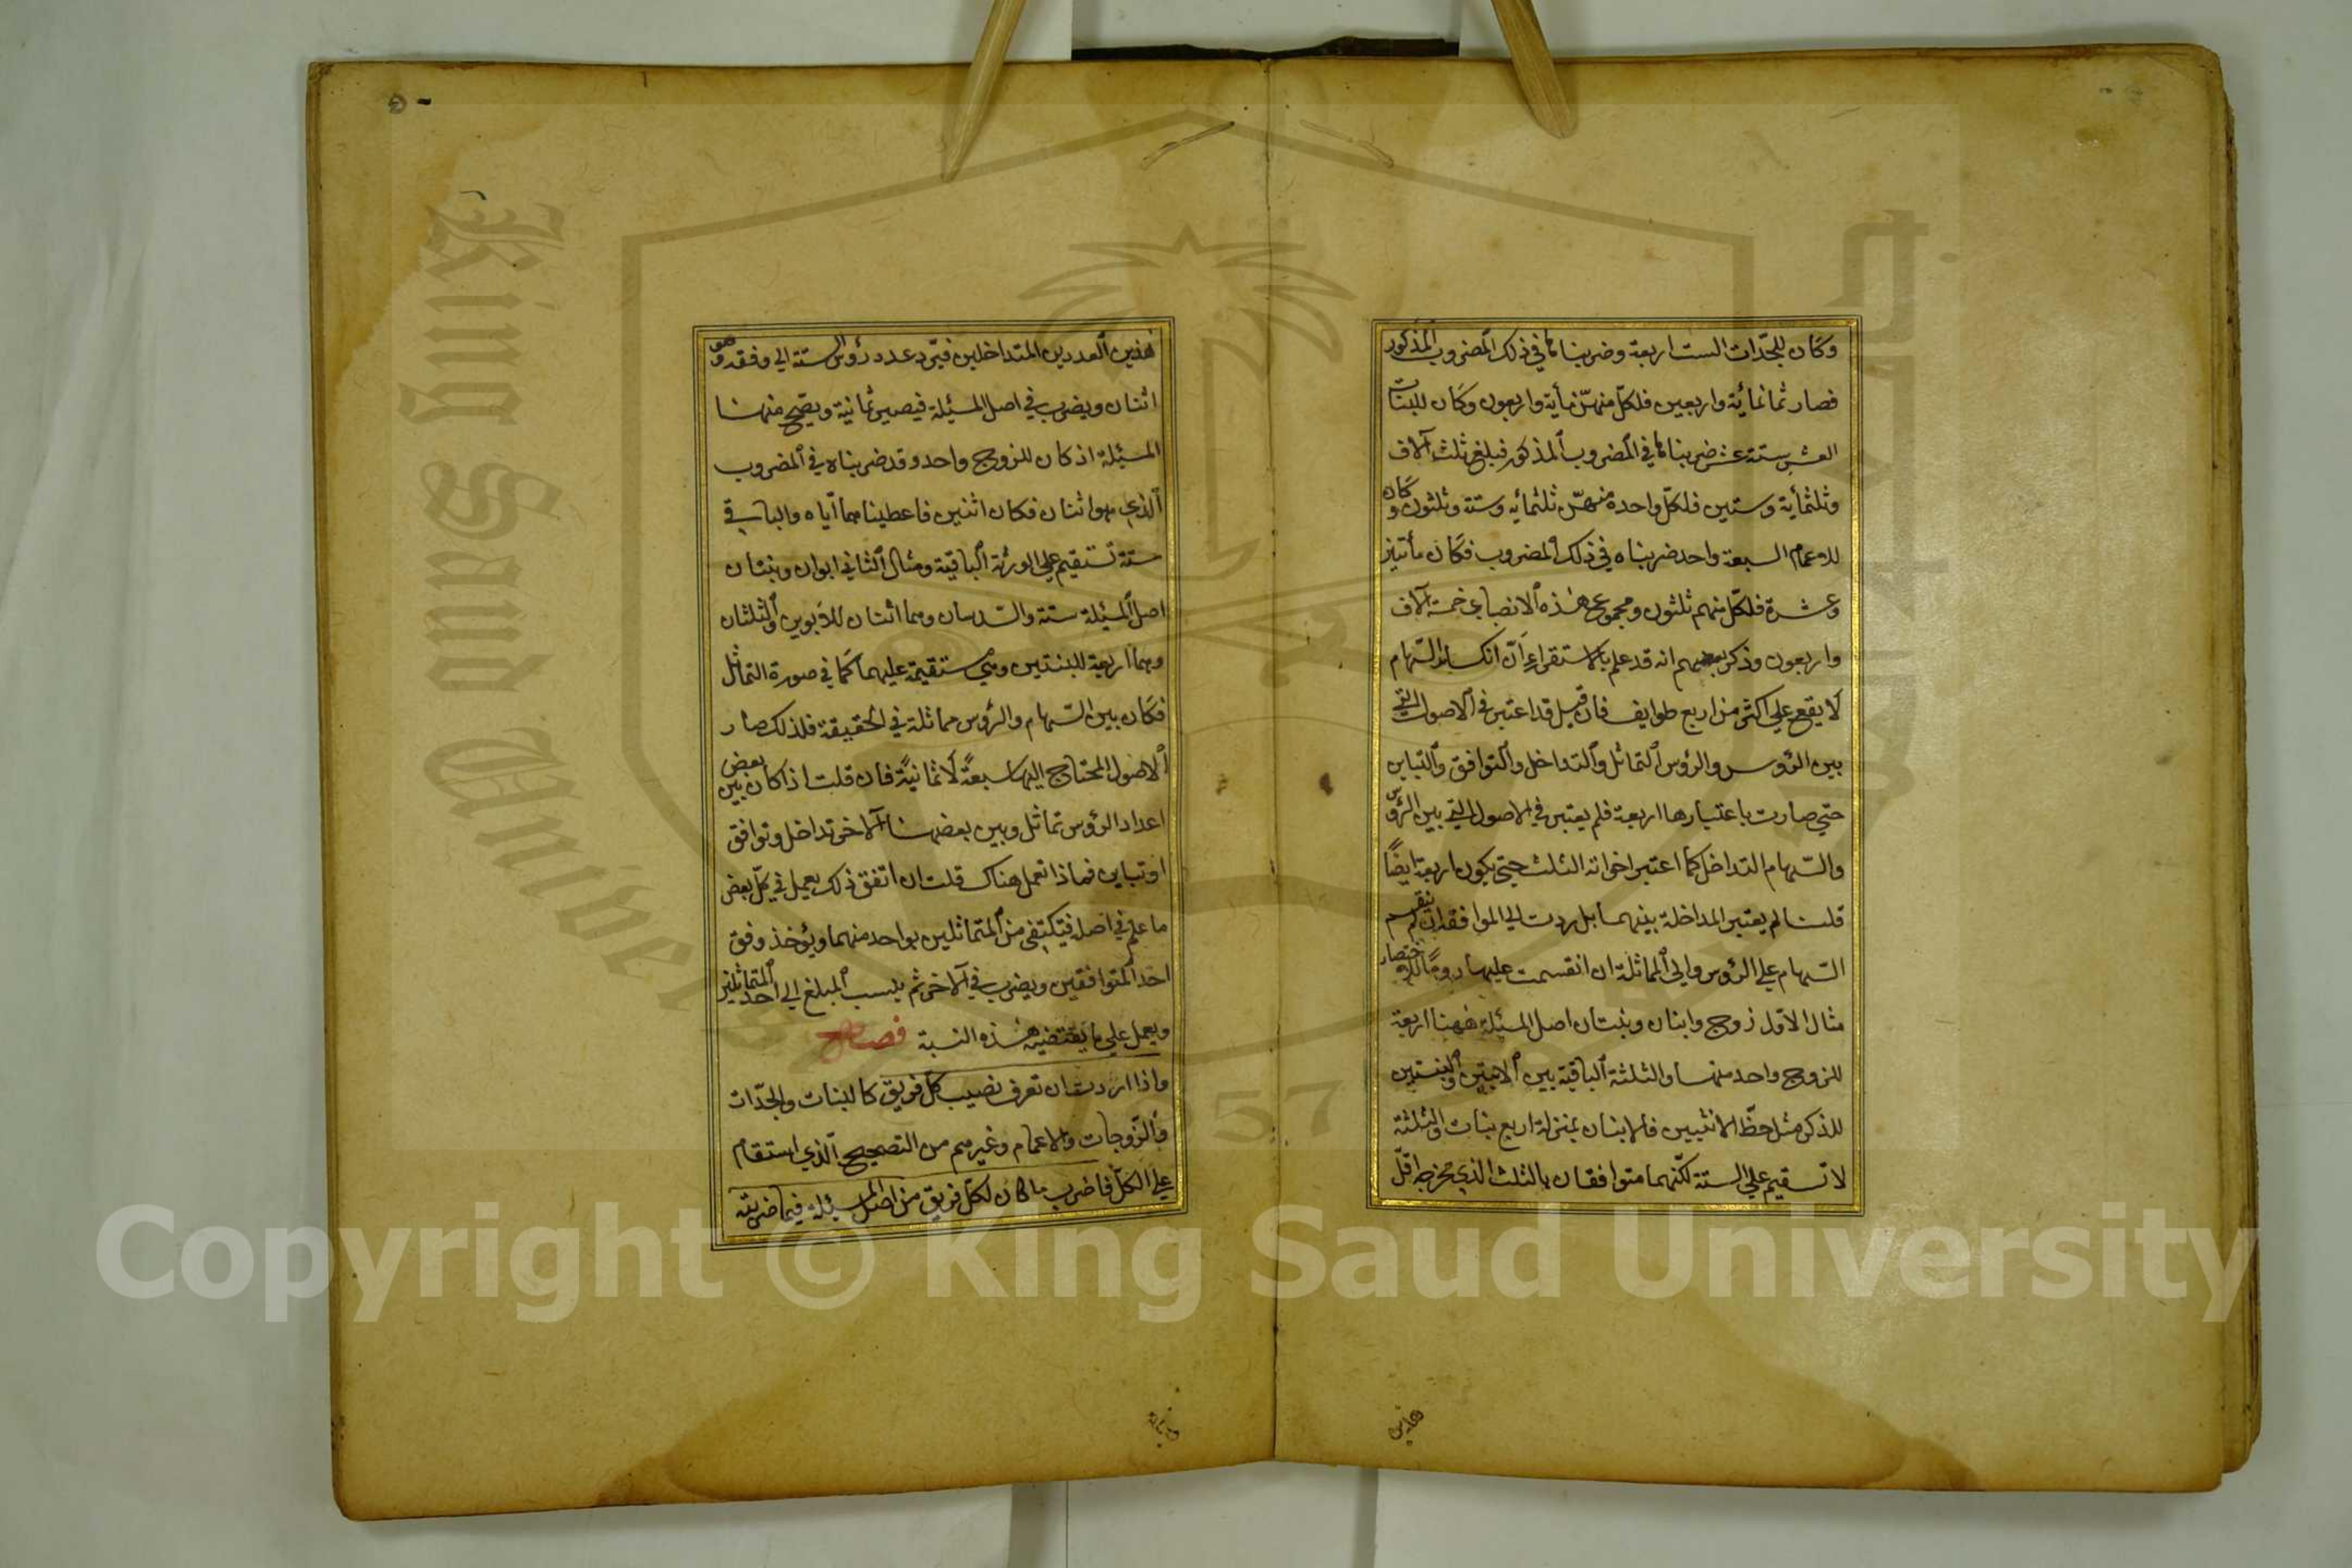 وكان للجدّات الست اربعة وضربناها في ذلك المضروب المذكور
فصار ثمانمائة واربعين فلكلّ منهنّ مأية واربعون وكان للبنات
العشر ستة عشر ضربناها في المضروب المذكور فبلغ ثلثة آلاف
وثلثمأية وستين فلكلّ واحدة منهنّ ثلثمأية وستة وثلثون وكان
للاعمام السبعة واحد ضربناه في ذلك المضروب فكان مأتين
وعشرة فلكلّ منهم ثلثون ومجموع هذه الانصباء خمسة آلاف
واربعون وذكر بعضهم انه قد علم بالاستقراء انّ انكسار السّهام
لا يقع علي اكثر من اربع طوايف فان قيل قد اعتبر في الاصول التي
بين الرؤس والرؤس التماثل والتداخل والتوافق والتباين
حتي صارت باعتبارها اربعة فلم يعتبر في الاصول التي بين الرؤس
والسّهام التداخل كما اعتبر اخواته الثلث حتي يكون اربعة ايضًا
قلنا لم يعتبر المداخلة بينهما بل ردت الي الموافقة ان لم ينقسم
السّهام علي الرؤس والي المماثلة ان انقسمت عليها رومًا للاختصار
مثال الاوّل زوج وابنان وبنتان اصل المسئلة ههنا اربعة
للزوج واحد منها والثلثة الباقية بين الابنين والبنتين
للذكر مثل حظّ الانثيين فالابنان بمنزلة اربع بنات والثلثة
لا تستقيم علي الستة لكنّهما متوافقان بالثلث الذي مخرجه اقلّ
هذين
هذين العددين المتداخلين فيردّ عدد رؤس الستة الي وفقه وهو
اثنان ويضرب في اصل المسئلة فيصير ثمانية ويصحّ منها
المسئلة اذ كان للزوج واحد وقد ضربناه في المضروب
الّذي هو اثنان فكان اثنين فاعطيناهما ايّاه والباقي
ستة تستقيم علي الورثة الباقية ومثال الثاني ابوان وبنتان
اصل المسئلة ستة والسّدسان وهما اثنان للابوين والثلثان
وهما اربعة للبنتين وهي مستقيمة عليهما كما في صورة التماثل
فكان بين السّهام والرؤس مماثلة في الحقيقة فلذلك صار
الاصول المحتاج اليها سبعةً لا ثمانيةً فان قلت اذا كان بين بعض
اعداد الرؤس تماثل وبين بعضها الآخر تداخل وتوافق
او تباين فماذا تعمل هناك قلت ان اتفق ذلك يعمل في كلّ بعض
ما علم في اصله فيكتفي من المتماثلين بواحد منهما ويؤخذ وفق
احد المتوافقين ويضرب في الآخر ثم ينسب المبلغ الي احد المتماثلين
ويعمل علي ما يقتضيه هذه النسبة فصل
واذا اردت ان تعرف نصيب كلّ فريق كالبنات والجدّات
والزّوجات والاعمام وغيرهم من التصحيح الّذي استقام
علي الكلّ فاضرب ما كان لكلّ فريق من اصل المسئلة فيما ضربته